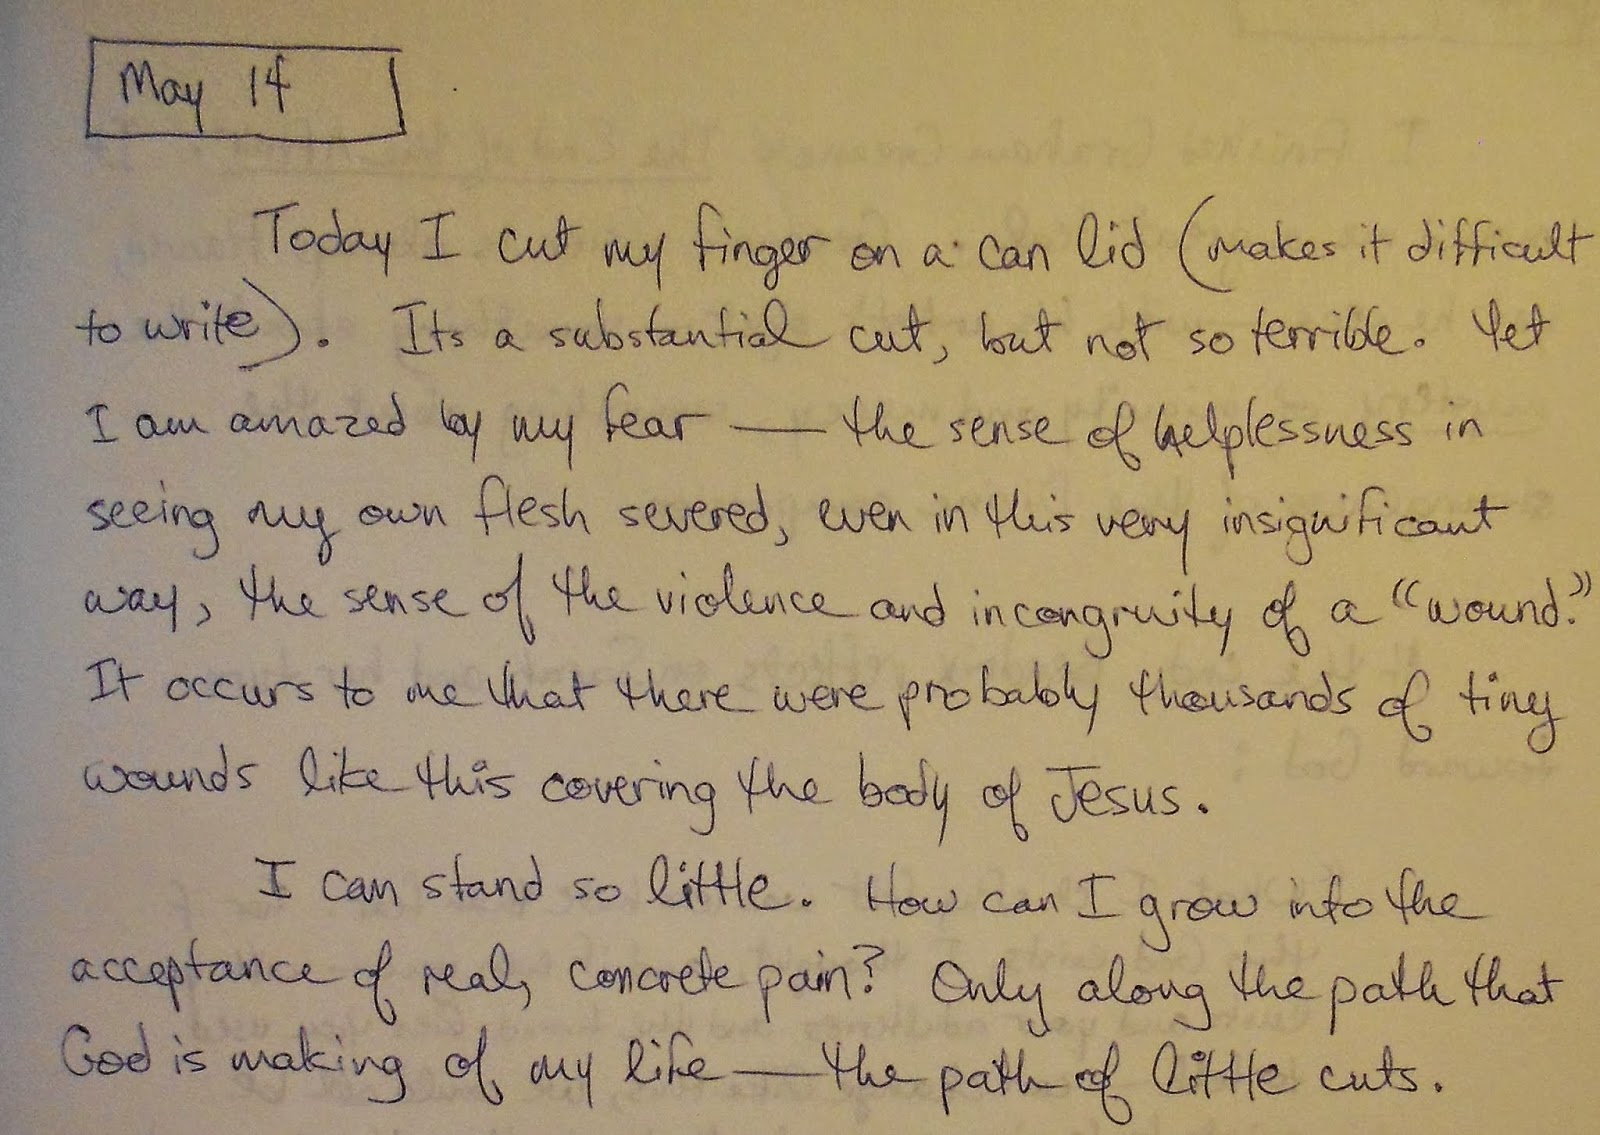 May 14
Today I cut my finger on a can lid (makes it difficult
to write). Its a substantial cut, but not so terrible. Yet
I am amazed by my fear — the sense of helplessness in
seeing my own flesh severed, even in this very insignificant
way, the sense of the violence and incongruity of a “wound.”
It occurs to me that there were probably thousands of tiny
wounds like this covering the body of Jesus.
I can stand so little. How can I grow into the
acceptance of real, concrete pain? Only along the path that
God is making of my life — the path of little cuts.